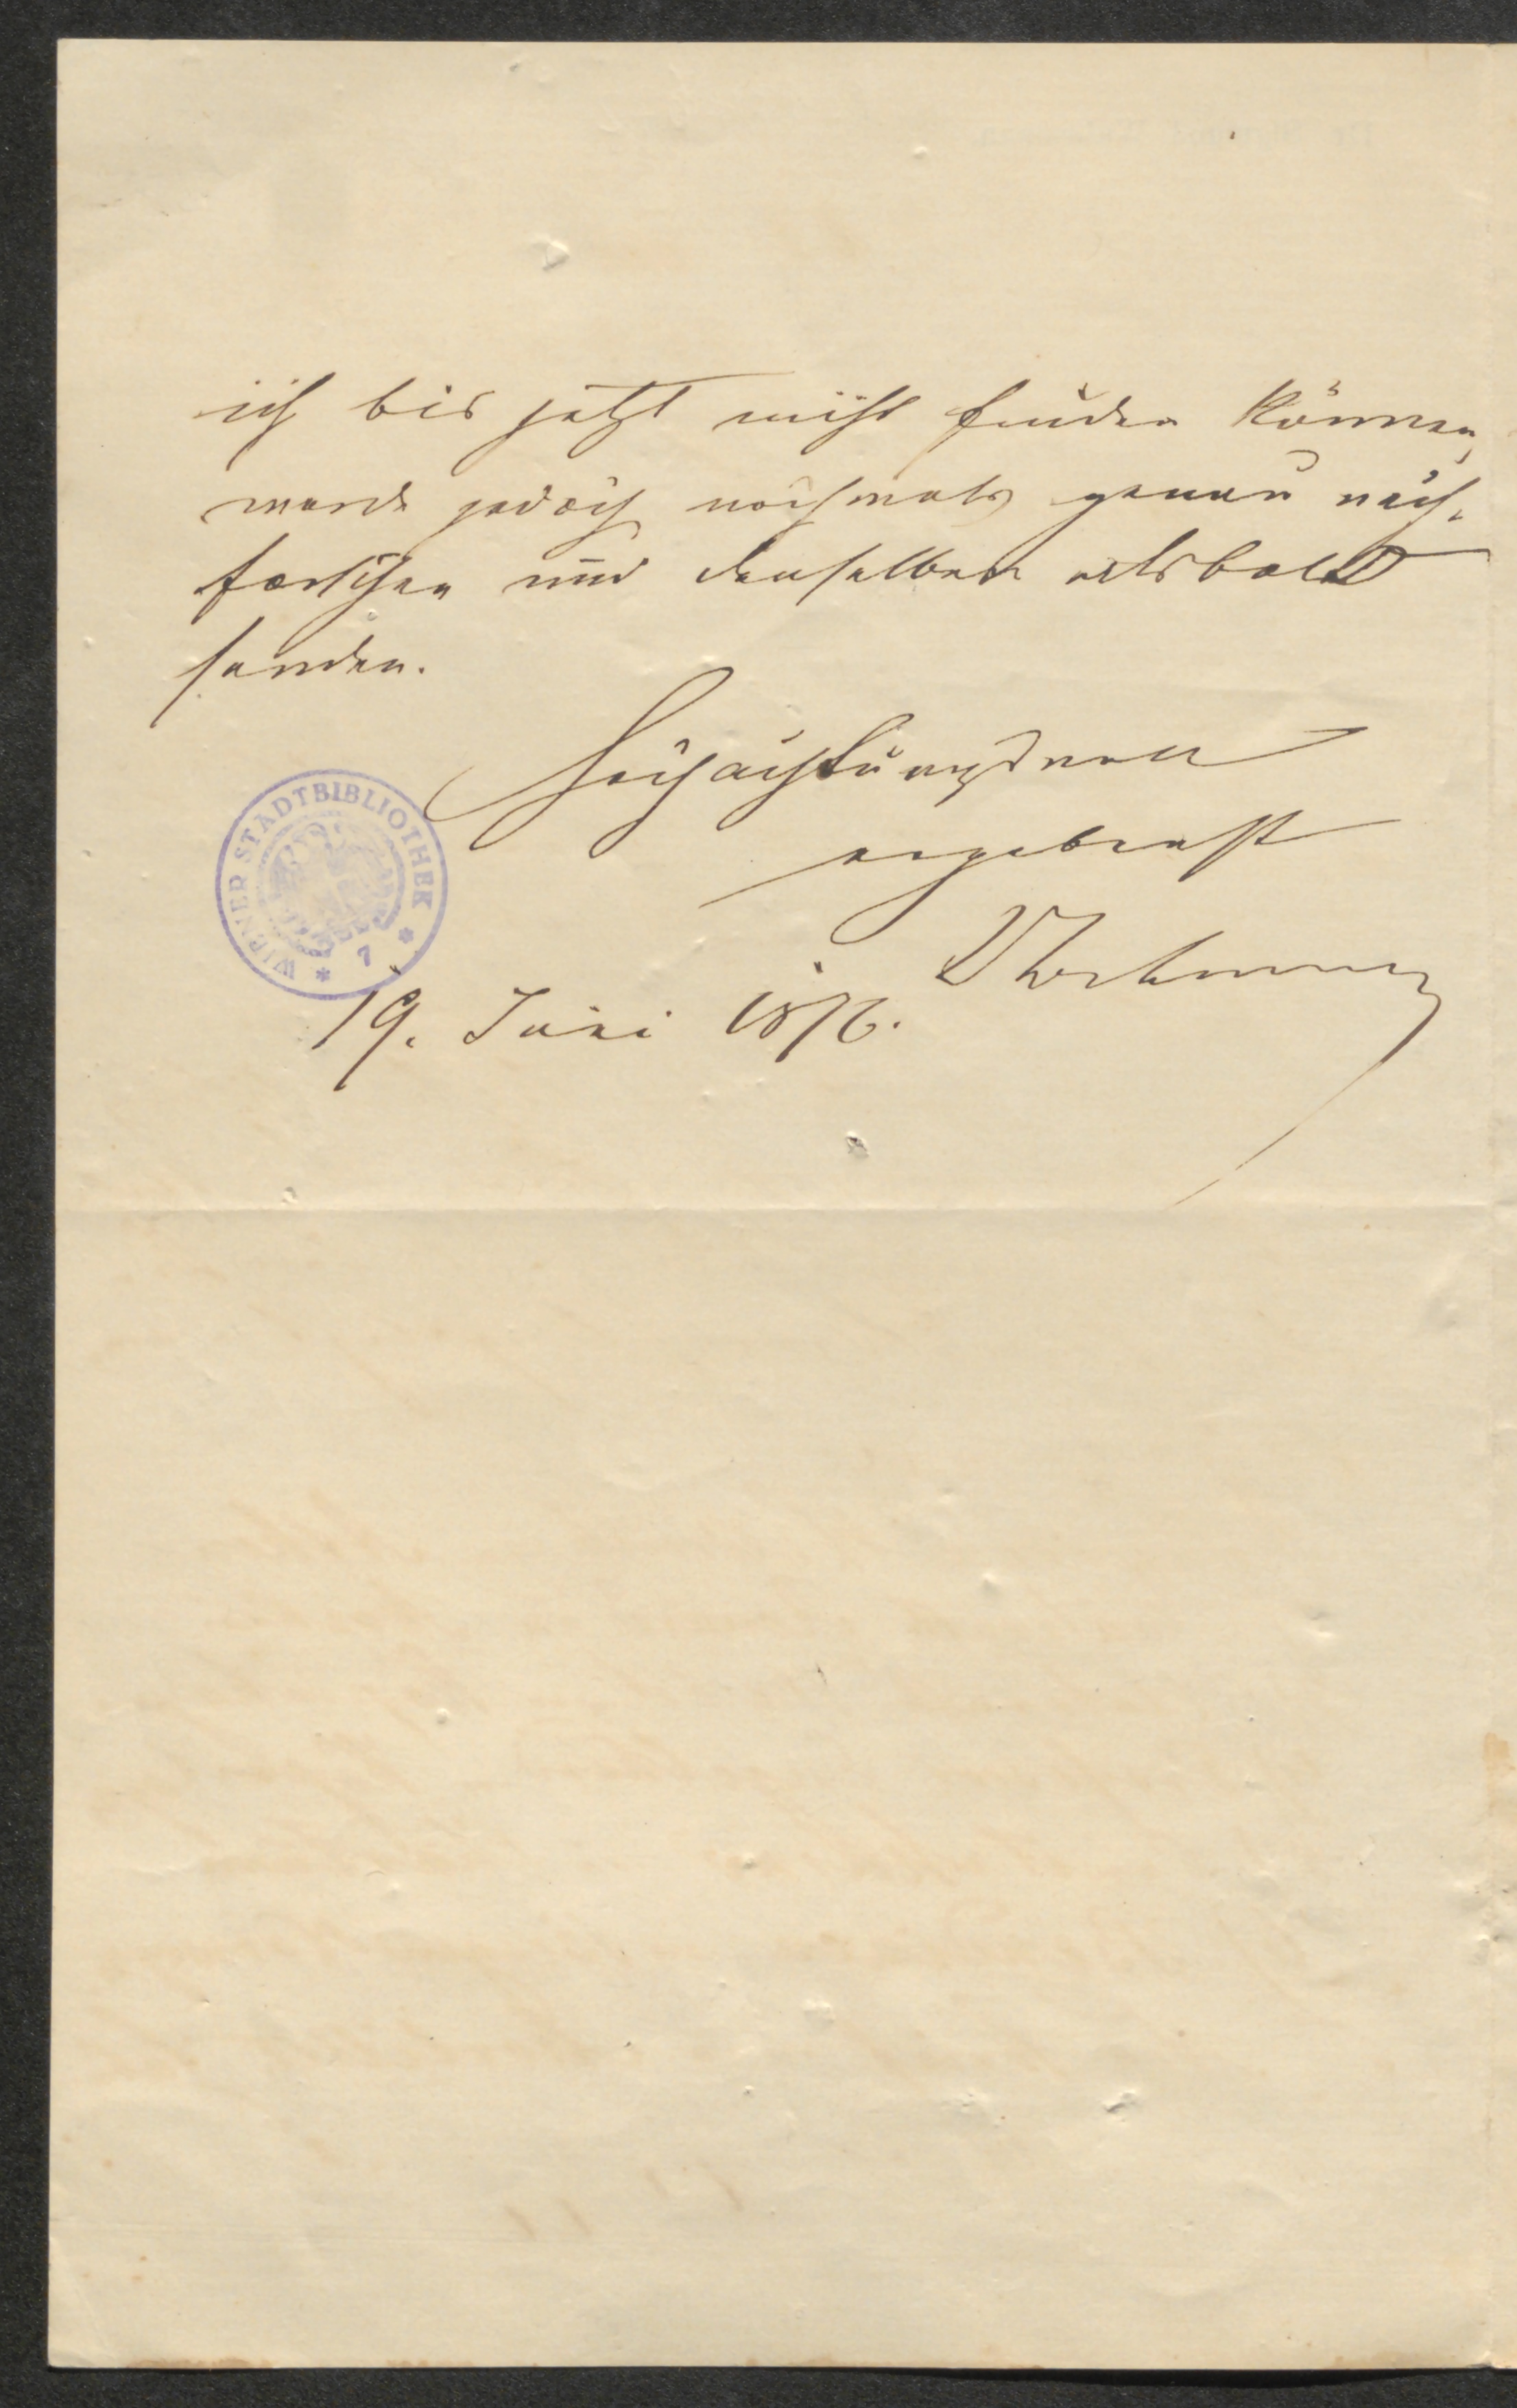 ich bis jetzt nicht finden können,
werde jedoch nochmals genau nach-
forschen und denselben alsbald
senden.
Hochachtungsvoll
ergebenst
WIENER STADTBIBLIOTHEK * 7 *
19. Juni 1876.